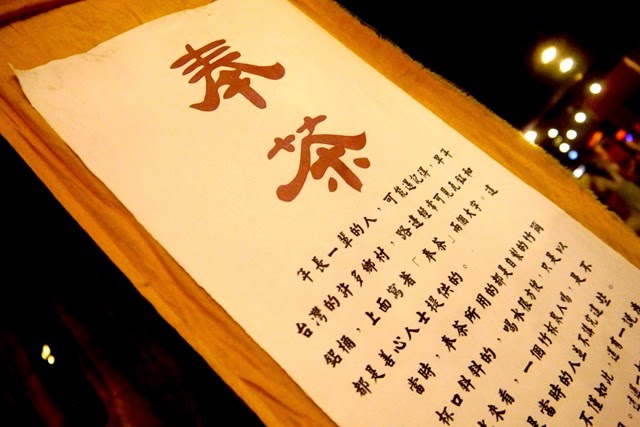 奉茶
年長一輩的人，可能還記得，早年
台灣的許多鄉村，路邊經常可見瓦缸和
鋁桶，上面寫著「奉茶」兩個大字。這
都是善心人士提供的。
當時，奉茶所用的都是自製的竹筒
杯口拌拌的，喝水很方便，只是以
來看，一個竹杯眾人喝，是不
是當時的人並不講究這些。
不僅如此，還有一說